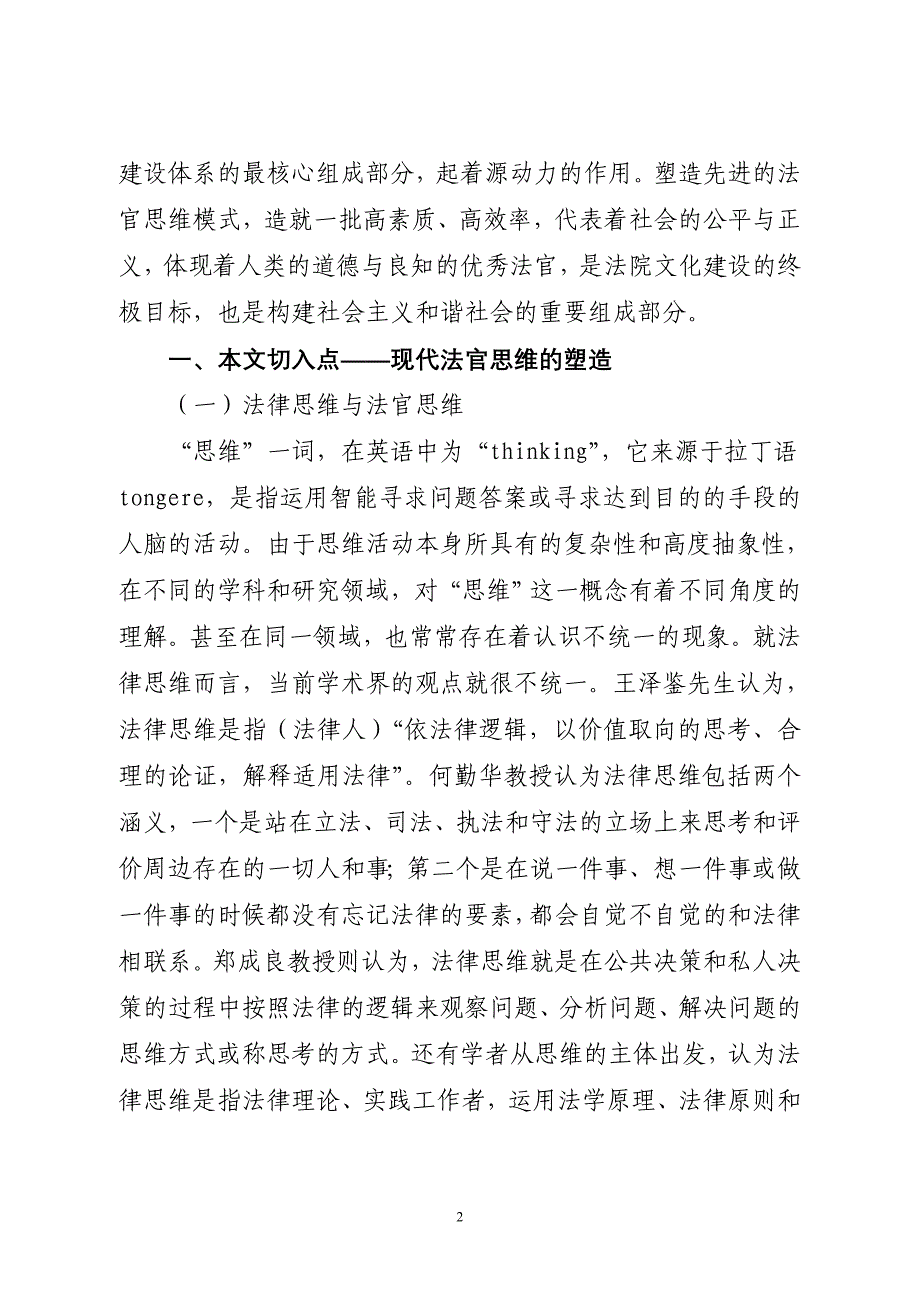 建设体系的最核心组成部分，起着源动力的作用。塑造先进的法
官思维模式，造就一批高素质、高效率，代表着社会的公平与正
义，体现着人类的道德与良知的优秀法官，是法院文化建设的终
极目标，也是构建社会主义和谐社会的重要组成部分。
一、本文切入点——现代法官思维的塑造
（一）法律思维与法官思维
“思维”一词，在英语中为“thinking”，它来源于拉丁语
tongere，是指运用智能寻求问题答案或寻求达到目的的手段的
人脑的活动。由于思维活动本身所具有的复杂性和高度抽象性，
在不同的学科和研究领域，对“思维”这一概念有着不同角度的
理解。甚至在同一领域，也常常存在着认识不统一的现象。就法
律思维而言，当前学术界的观点就很不统一。王泽鉴先生认为，
法律思维是指（法律人）“依法律逻辑，以价值取向的思考、合
理的论证，解释适用法律”。何勤华教授认为法律思维包括两个
涵义，一个是站在立法、司法、执法和守法的立场上来思考和评
价周边存在的一切人和事；第二个是在说一件事、想一件事或做
一件事的时候都没有忘记法律的要素，都会自觉不自觉的和法律
相联系。郑成良教授则认为，法律思维就是在公共决策和私人决
策的过程中按照法律的逻辑来观察问题、分析问题、解决问题的
思维方式或称思考的方式。还有学者从思维的主体出发，认为法
律思维是指法律理论、实践工作者，运用法学原理、法律原则和
2